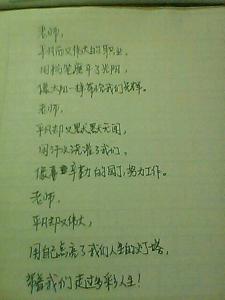 老师，
平凡而又伟大的职业，
用粉笔磨平了光阴，
像太阳一样带给我们光辉。
老师，
平凡却又默默无闻，
用汗水浇灌了我们，
像辛勤的园丁，努力工作。
老师，
平凡却又伟大，
用自己点亮了我们人生的灯塔，
带着我们走过多彩人生！